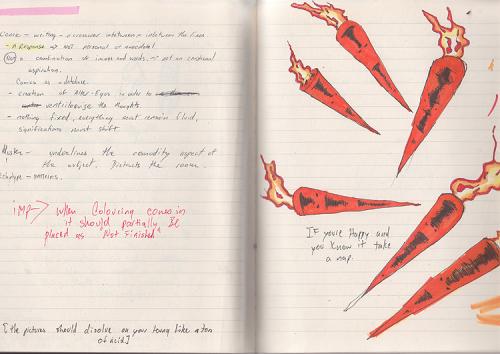 Comic - writing - a crossover inbetween + inbetween the lines
- A Response up not personal or anecdotal
Not a combination of images and words. - not an emotional
aspiration.
Comics as a database.
- creation of Alter-Egos in order to
ventriloquize the thoughts.
- nothing fixed, everything must remain fluid,
significations must shift
- underlines the comodity aspect of
the subject. Distracts the reader.
- patterns.
IMP-> when Colouring comes in
it should partially Be
placed as "Not Finished"
IF you're Happy and
you know it take
a nap.
[the pictures should disolve on your toung like a ton
of acid]